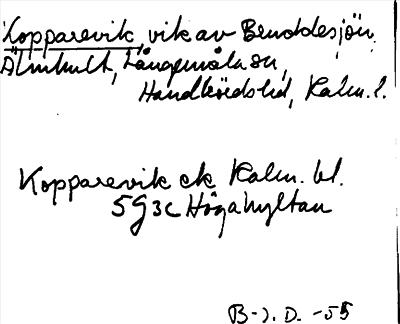 Kopparevik, vik av Benddesjön,
Älmhult, Långemåla sn,
Handbörds hd, Kalm. l.
Kopparevik ek Kalm. bl.
5G3c Högahyltan
B-J. D. -55